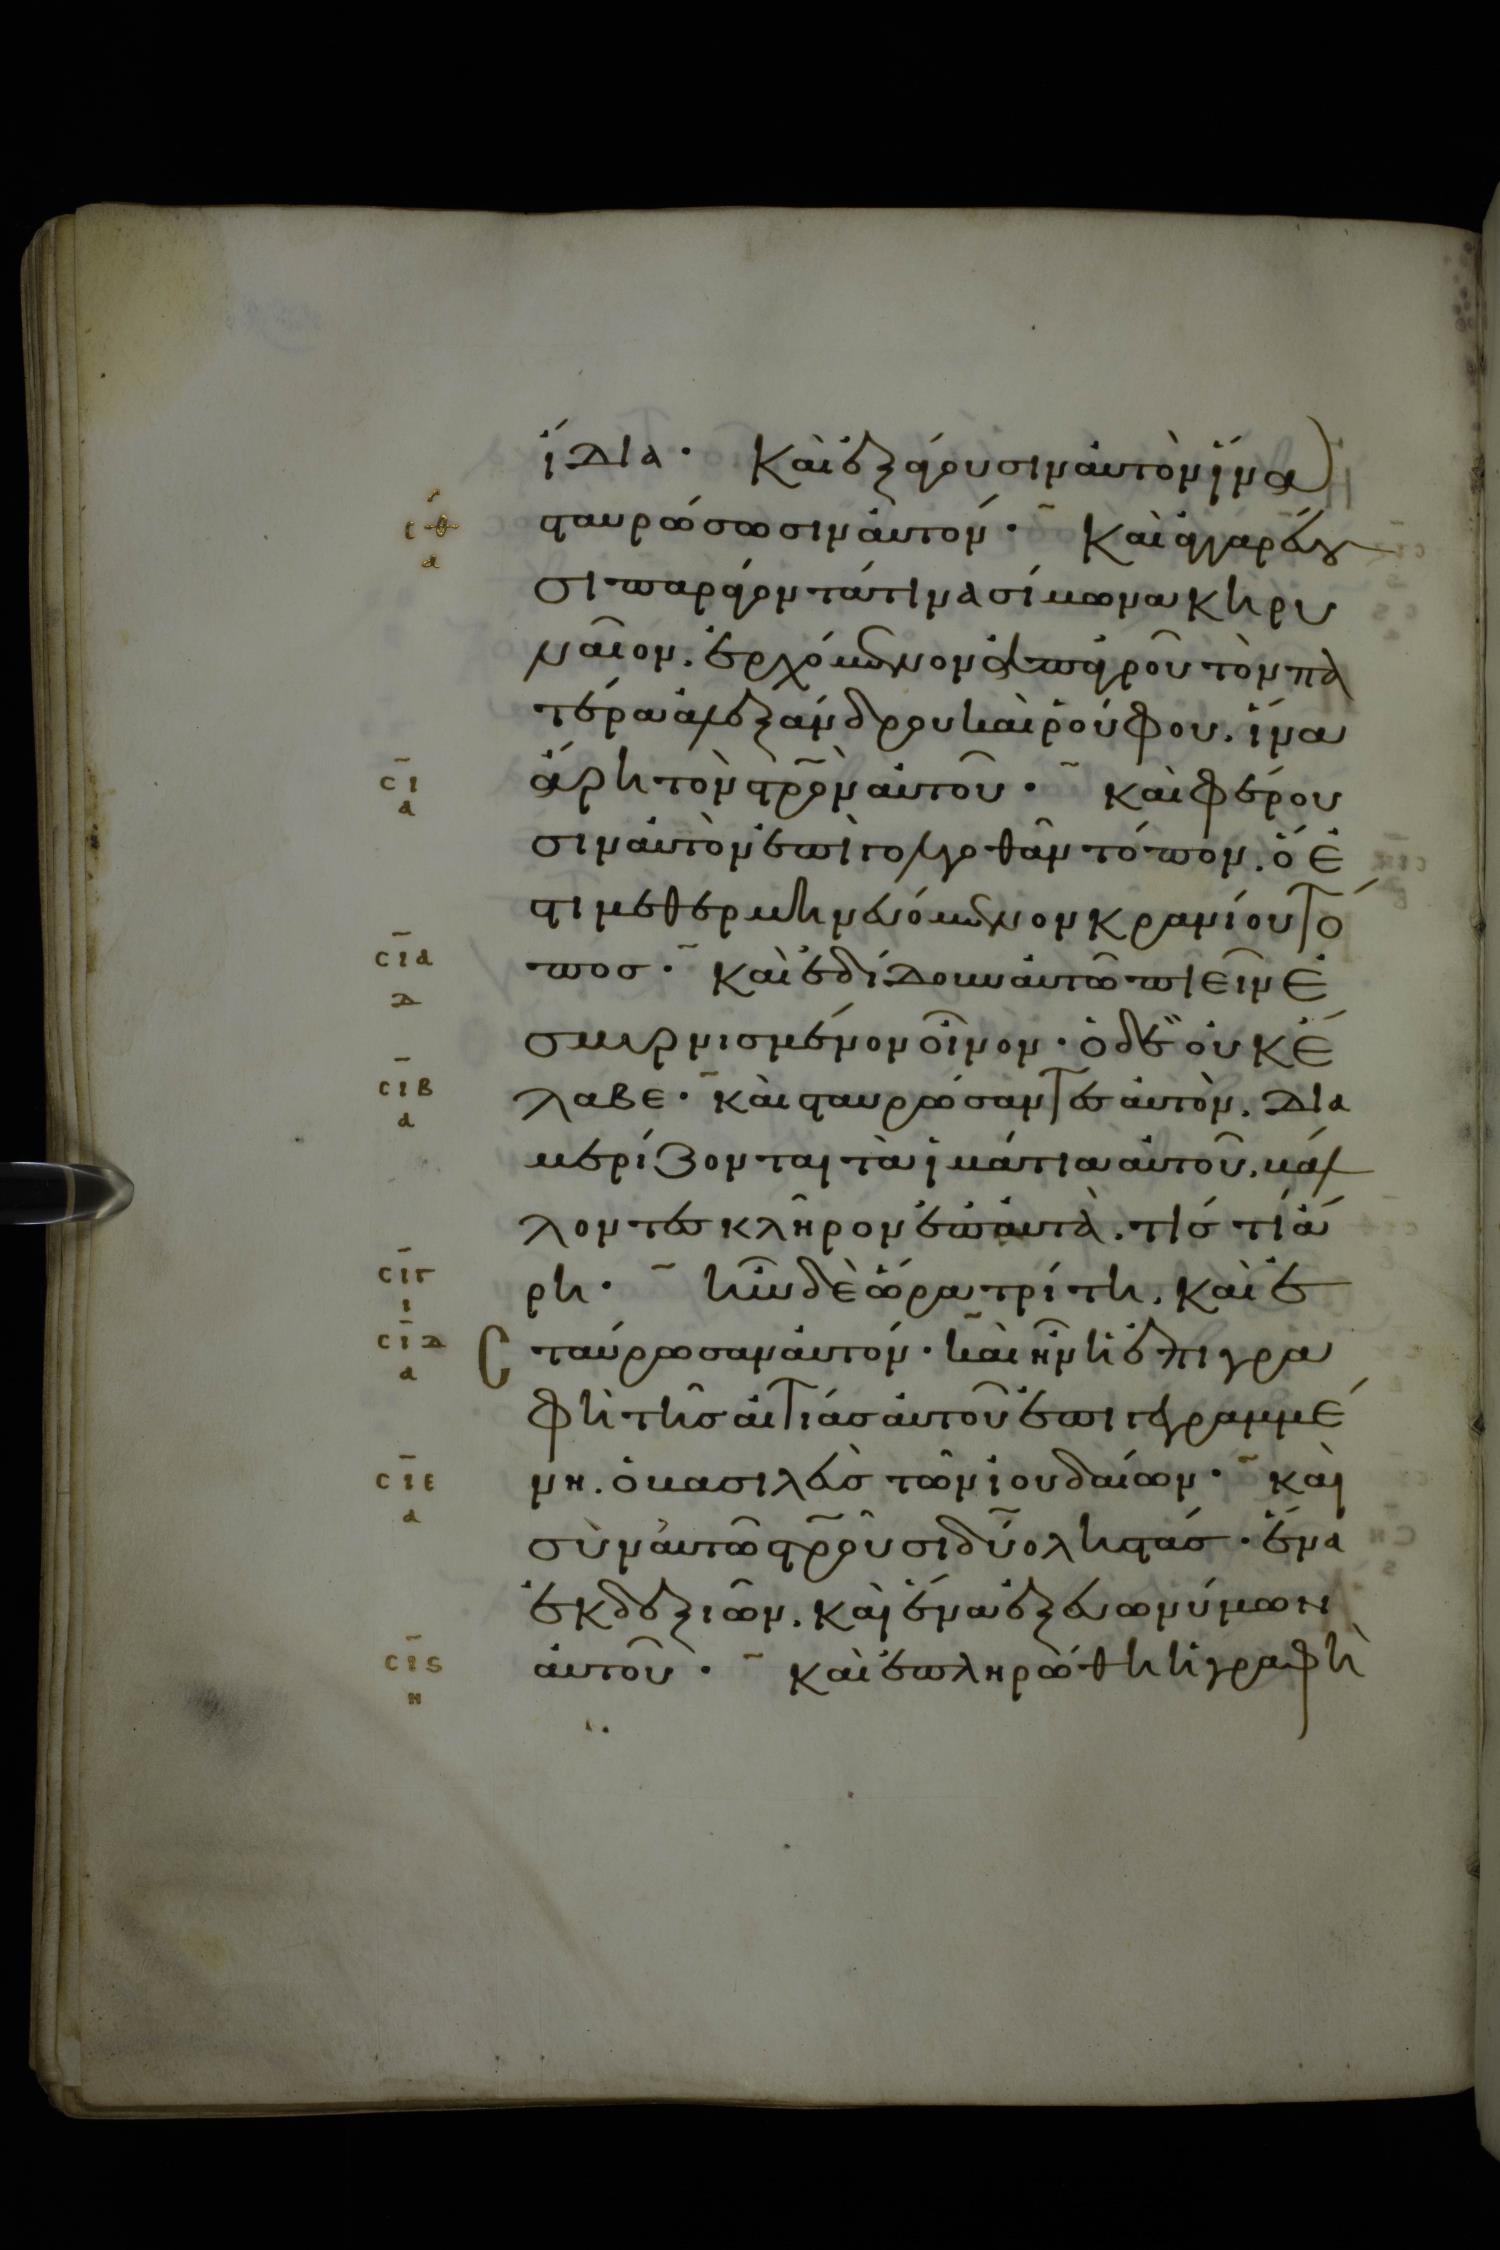 ἴδια · Καὶ ἐξάγουσιν αὐτὸν ἵνα
σθ
α
σταυρώσωσιν αὐτόν · Καὶ ἀγγαρεύου
σι παράγοντά τινα σίμωνα κυρη
ναῖον. ἐρχόμενον ἀπ' ἀγροῦ τὸν πα
τέρα ἀλεξάνδρου καὶ ῥούφου. ἵνα
σι
α
ἄρῃ τὸν στρον αὐτοῦ · καὶ φέρου
σιν αὐτὸν ἐπὶ γολγοθᾶν τόπον. ὅ ἐ
στι μεθερμηνευόμενον κρανίου τό
σια
δ
πος · καὶ ἐδίδουν αὐτῶ πιεῖν ἐ
σμυρνισμένον οἶνον · ὁ δὲ οὐκ ἔ
σιβ
α
λαβε · καὶ σταυρώσαντες αὐτὸν. δια
μερίζονται τὰ ἱμάτια αὐτοῦ. βάλ
λοντες κλῆρον ἐπ' αὐτὰ. τίς τί ἄ
σιγ
ι
ρῃ · ἦν δὲ ὥρα τρίτη. καὶ ἐ
σιδ
α
σταύρωσαν αὐτόν · καὶ ἦν ἡ ἐπιγρα
φὴ τῆς αἰτίας αὐτοῦ ἐπιγεγραμμέ
σιε
α
νη. ὁ βασιλεὺς τῶν ἰουδαίων · καὶ
σὺν αὐτῶ στροῦσι δύο ληστάς · ἕνα
ἐκ δεξιῶν. καὶ ἕνα ἐξ εὐωνύμων
σις
η
αὐτοῦ · καὶ ἐπληρώθη ἡ γραφὴ